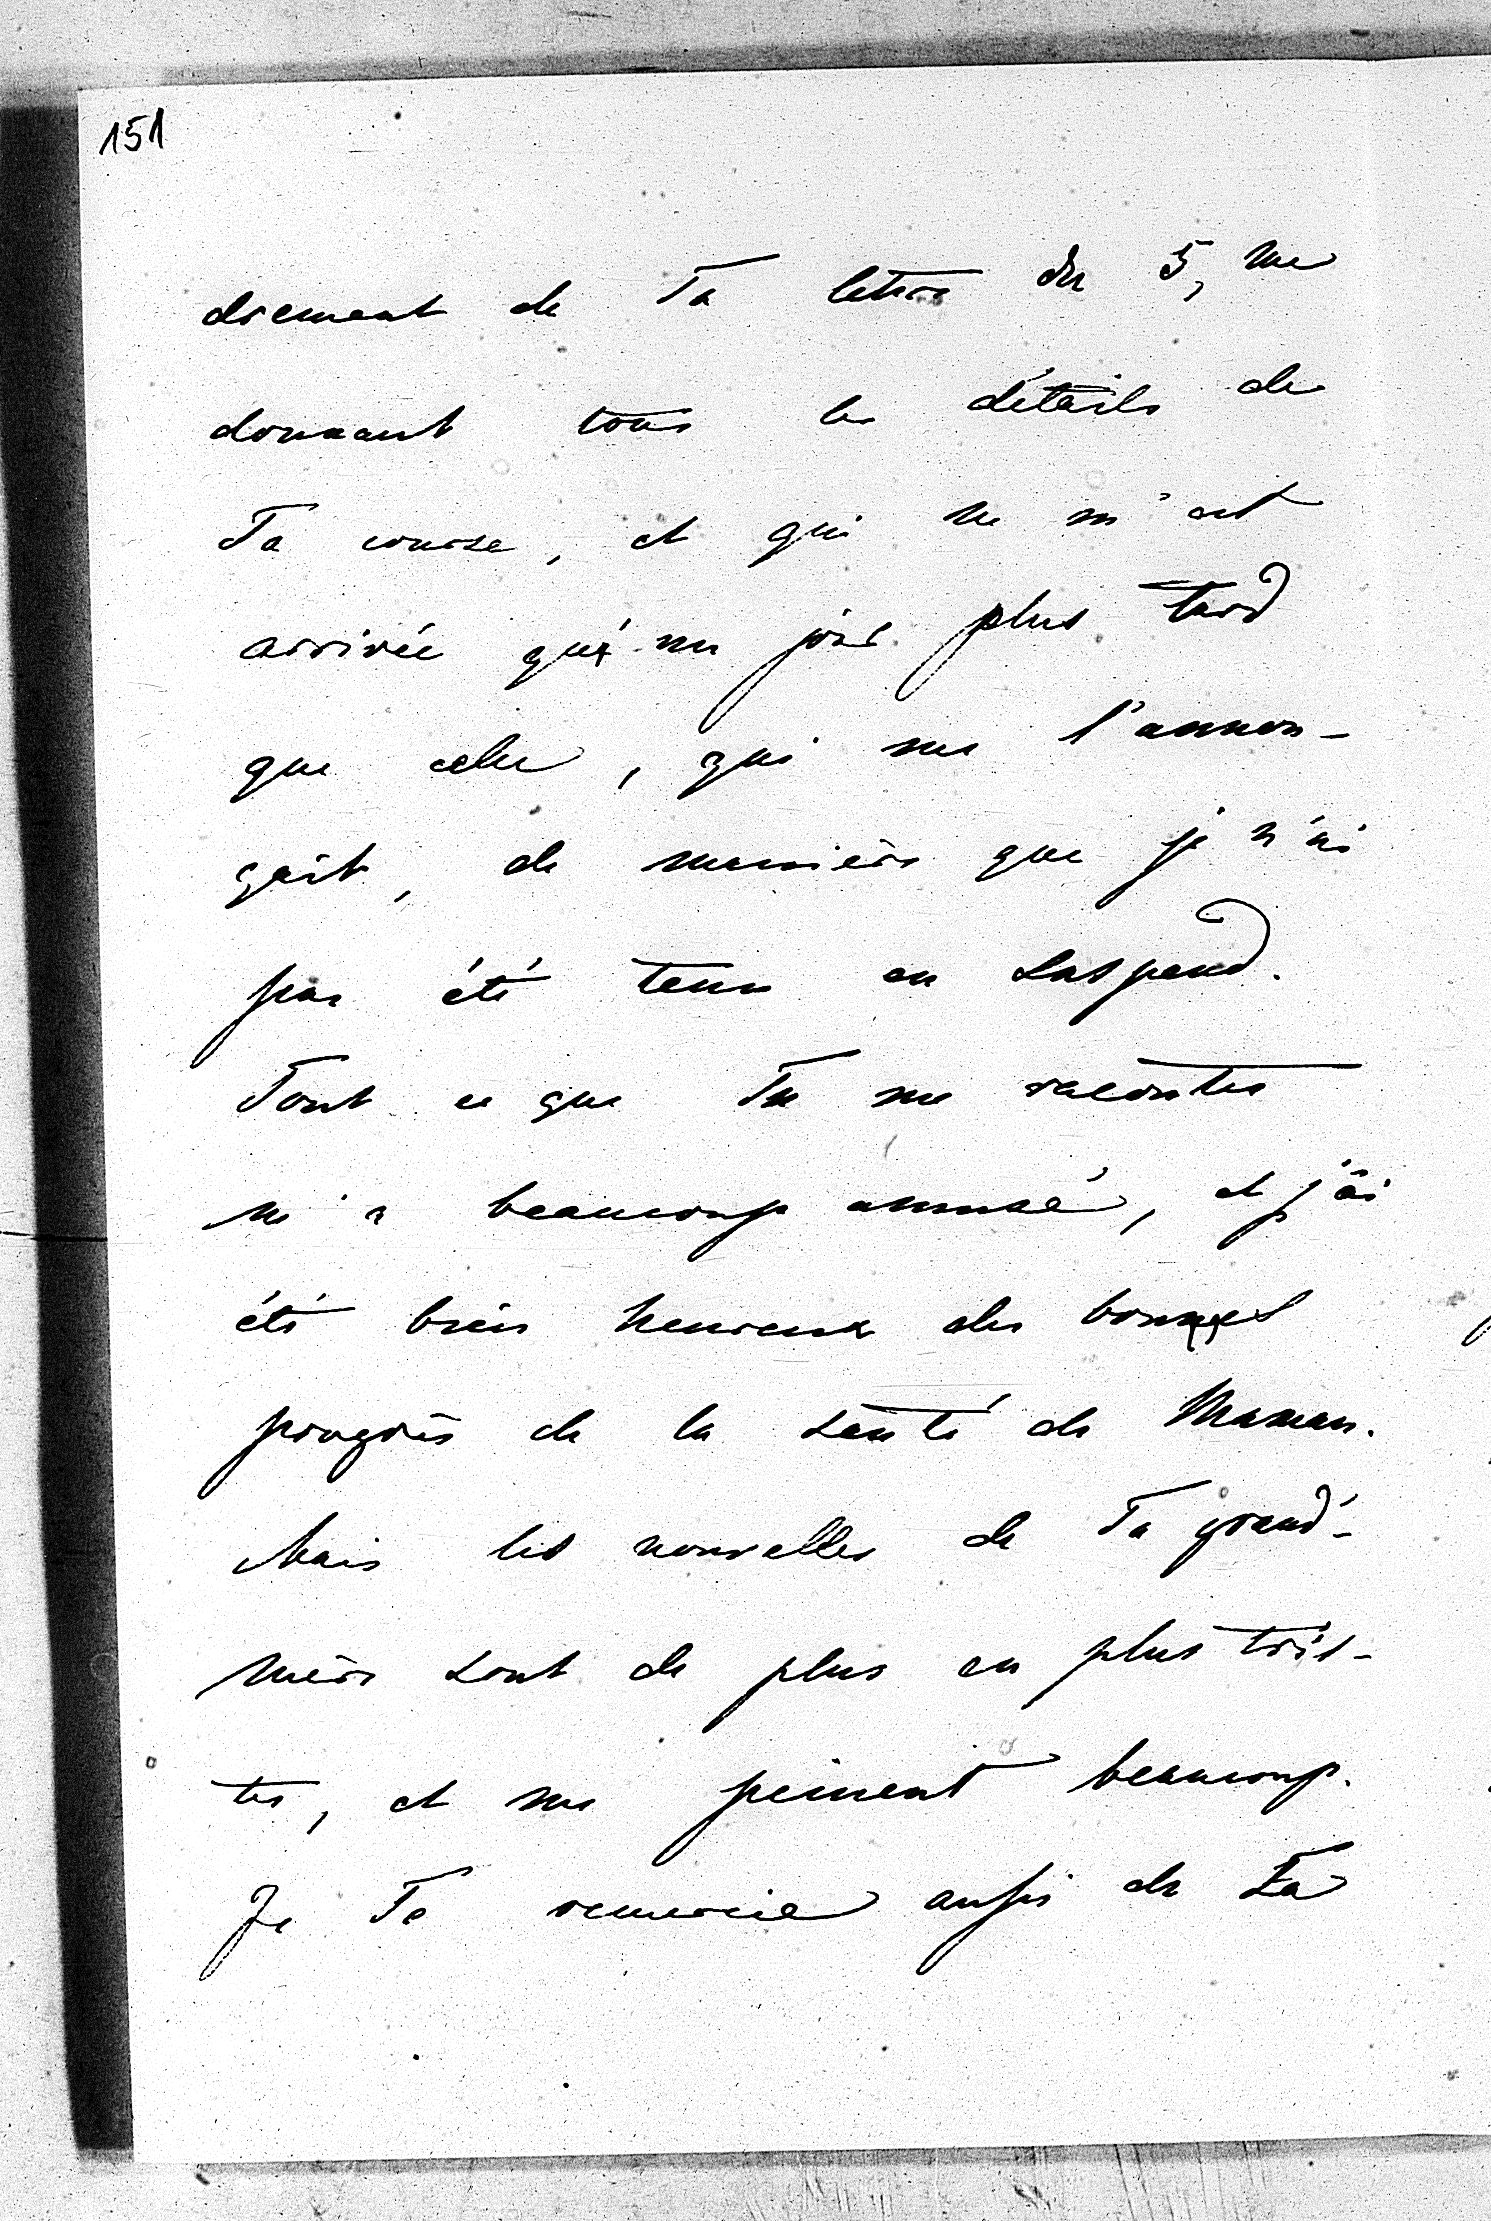 151
drement de Ta lettre du 5, me
donnant tous les détails de
Ta course, et qui ne m'est
arrivée qu'un jour plus tard
que celle, qui me l'annon-
çait, de manière que je n'ai
pas été tenu en suspend.
Tout ce que Tu me racontes
m'a beaucoup amusé, et j'ai
été bien heureux des bonnes
progrès de la santé de Maman.
Mais les nouvelles de Ta grand'-
mère sont de plus en plus tris-
tes, et me peinent beaucoup.
Je Te remercie aussi de Ta